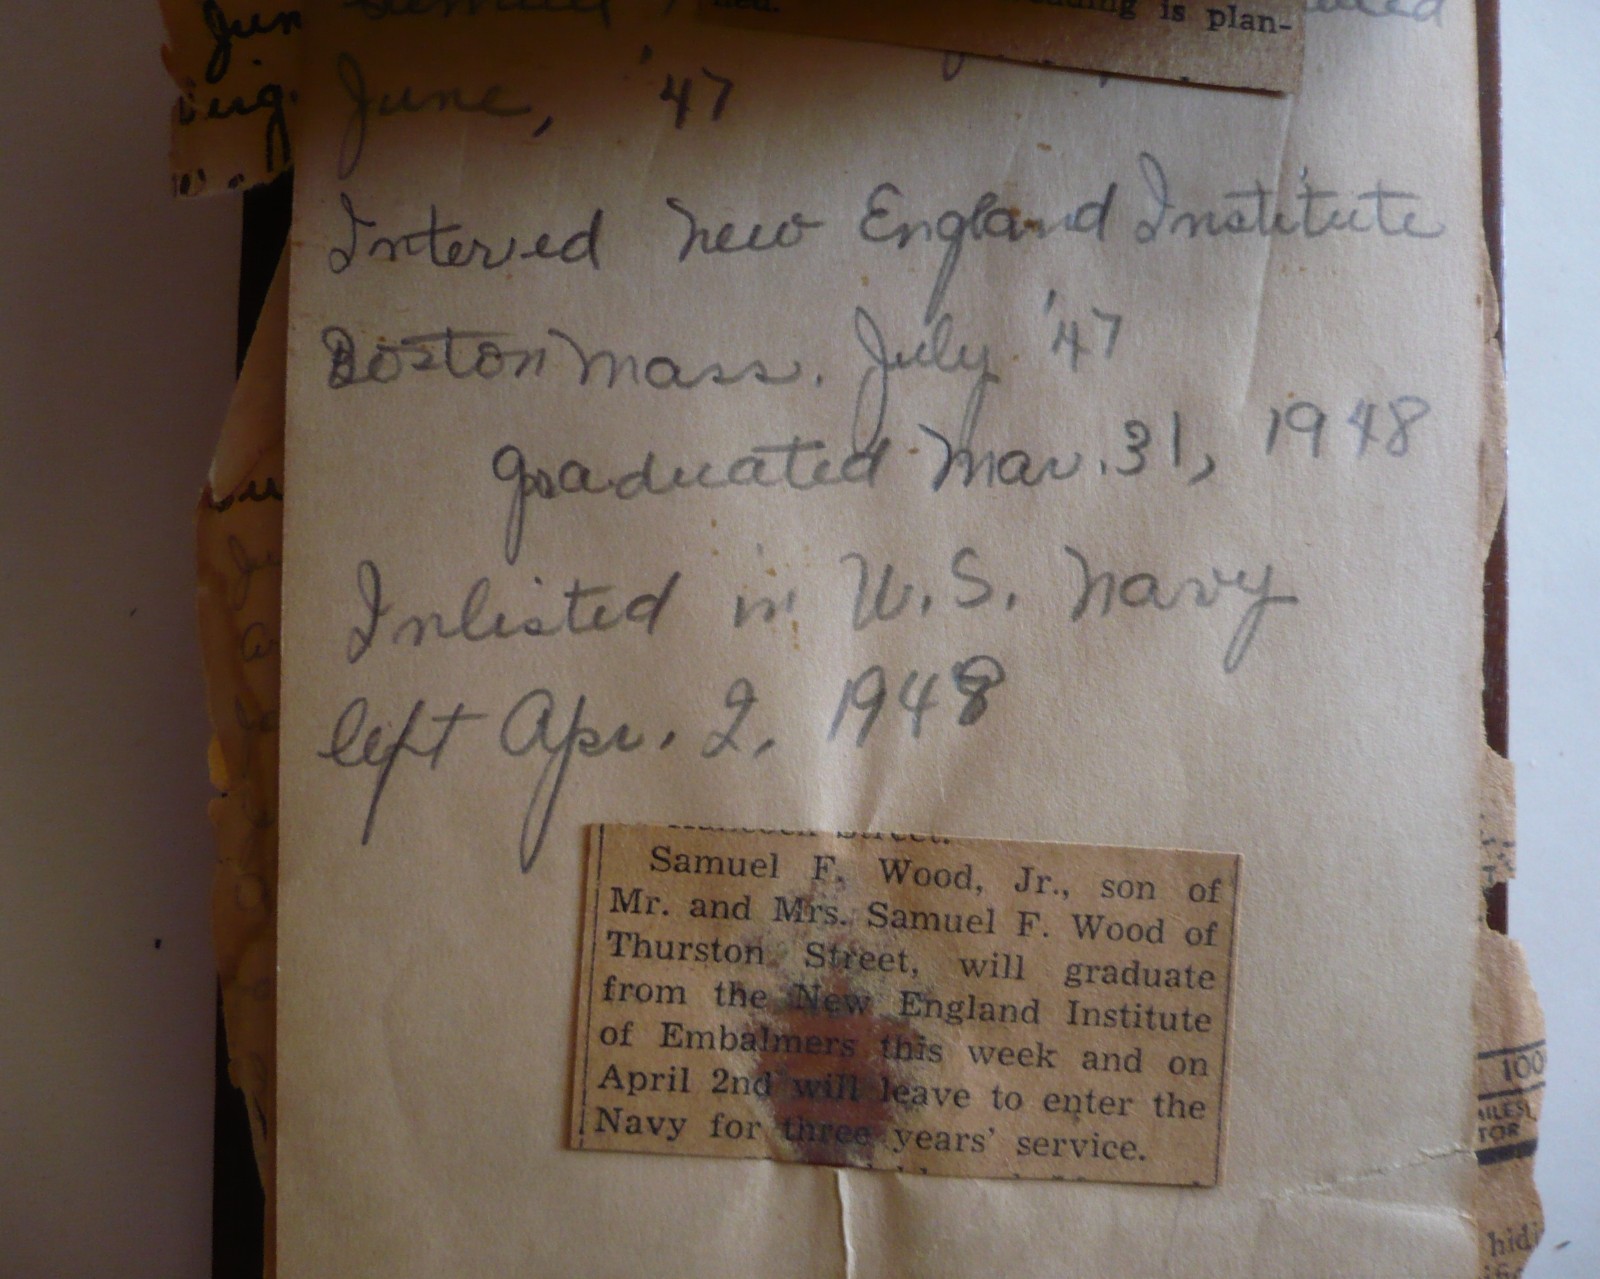 Jun Samuel
ned. is plan-
June, '47
Intered New England Institute
Boston Mass. July '47
graduated Mar. 31, 1948
Inlisted in U.S. Navy
left Apr. 2, 1948
Street.
Samuel F. Wood, Jr., son of
Mr. and Mrs. Samuel F. Wood of
Thurston Street, will graduate
from the New England Institute
of Embalmers this week and on
April 2nd will leave to enter the
Navy for three years' service.
100
TOR